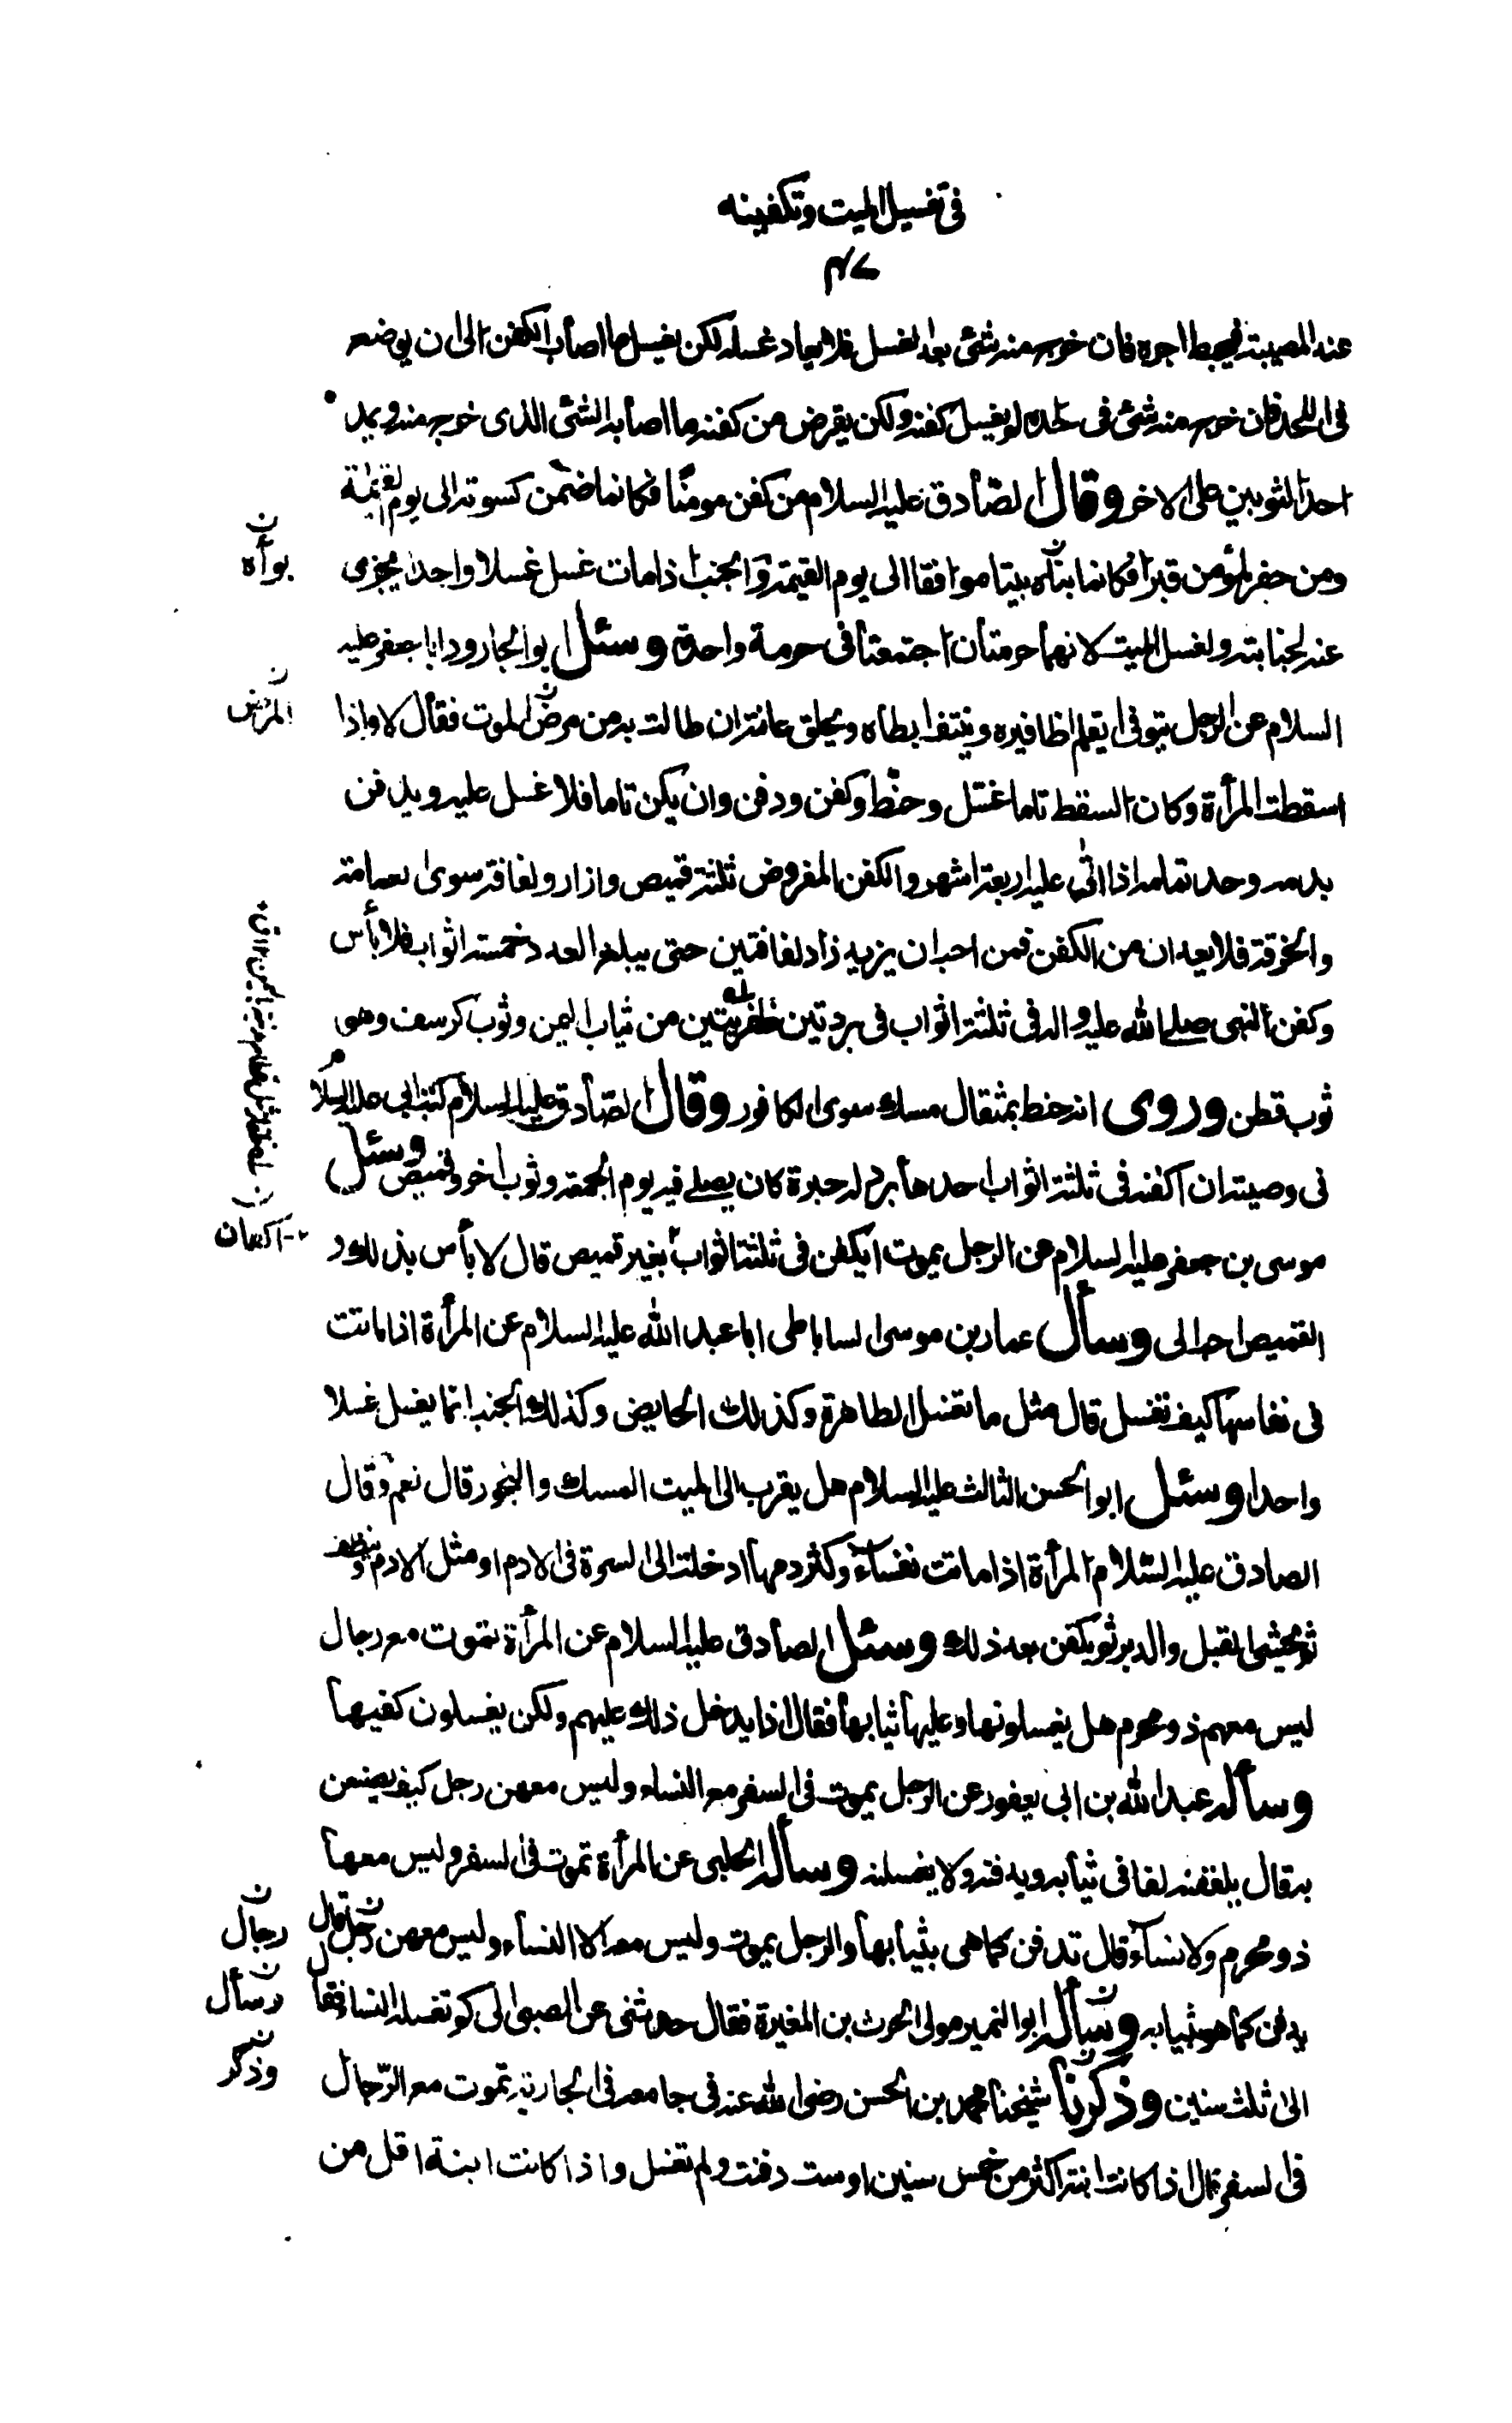 فى تغسيل الميت وتكفينه
٤٧
عند المصيبة فيحبط اجره فان خرج منه شئ بعد الغسل فلا يعاد غسله لكن يغسل ما اصاب الكفن الى ان يوضع
فى اللحد فان خرج منه شئ فى لحده لم يغسل كفنه ولكن يقرض من كفنه ما اصابه الشئ الذى خرج منه ويمد
احد الثوبين على الاخر وقال الصادق عليه السلام من كفن مومنا فكانما ضمن كسوته الى يوم القيمة
ومن حفر لمؤمن قبرا فكانما بناه بيتا موافقا الى يوم القيمة والجنب اذا مات غسل غسلا واحدا يجزى
عنه لجنابته ولغسل الميت لانهما حرمتان اجتمعتا فى حرمة واحدة وسئل ابو الجارود ابا جعفر عليه
السلام عن الرجل يتوفى ايقلم اظافيره وينتف ابطاه ويحلق عانته ان طالت به من مرض الموت فقال لا واذا
اسقطت المرأة وكان السقط تاما غسل وحنط وكفن ودفن وان يكن تاما فلا غسل عليه ويدفن
بدمه وحد تمامه اذا اتى عليه اربعة اشهر والكفن المفروض ثلثة قميص وازار ولفافة سوى العمامة
والخرقة فلا يعدان من الكفن فمن احب ان يزيد زاد لفافتين حتى يبلغ العدد خمسة اثواب فلا بأس
وكفن النبى صلى الله عليه واله فى ثلثة اثواب فى بردتين ظفريتين من ثياب اليمن وثوب كرسف وهو
ثوب قطن وروى انه حنط بمثقال مسك سوى الكافور وقال الصادق عليه السلام كتب ابى عليه السلام
فى وصيته ان اكفنه فى ثلثة اثواب احدها برد له حبرة كان يصلى فيه يوم الجمعة وثوب اخر وقميص وسئل
موسى بن جعفر عليه السلام عن الرجل يموت ايكفن فى ثلثة اثواب بغير قميص قال لا بأس بذلك و
القميص احب الى وسأل عمار بن موسى الساباطى ابا عبد الله عليه السلام عن المرأة اذا ماتت
فى نفاسها كيف تغسل قال مثل ما تغسل الطاهرة وكذلك الحايض وكذلك الجنب انما يغسل غسلا
واحدا وسئل ابو الحسن الثالث عليه السلام هل يقرب الى الميت المسك والبخور قال نعم وقال
الصادق عليه السلام المرأة اذا ماتت نفساء وكثر دمها ادخلت الى السرة فى الادم او مثل الادم وتنظف
ثم يحشى القبل والدبر ثم يكفن بعد ذلك وسئل الصادق عليه السلام عن المرأة تموت مع رجال
ليس معهم ذو محرم هل يغسلونها وعليها ثيابها فقال اذا يدخل ذلك عليهم ولكن يغسلون كفيها
وسأله عبد الله بن ابى يعفور عن الرجل يموت فى السفر مع النساء وليس معهن رجل كيف يصنعن
به قال يلففنه لفا فى ثيابه ويدفنه ولا يغسلنه وسأله الحلبى عن المرأة تموت فى السفر وليس معها
ذو محرم ولا نساء قال تدفن كما هى بثيابها والرجل يموت وليس معه الا النساء وليس معهن رجل قال
يدفن كما هو بثيابه وسأل ابو النمير مولى الحرث بن المغيرة فقال حدثنى عن الصبى الى كم تغسله النساء فقال
الى ثلث سنين وذكرنا شيخنا محمد بن الحسن رضى الله عنه فى جامعه فى الجارية تموت مع الرجال
فى السفر قال اذا كانت ابنة اكثر من خمس سنين او ست دفنت ولم تغسل واذا كانت ابنة اقل من
ن
بوأه
ن
المرض
ن
رجال
ن
وسأل
ن
وذكر